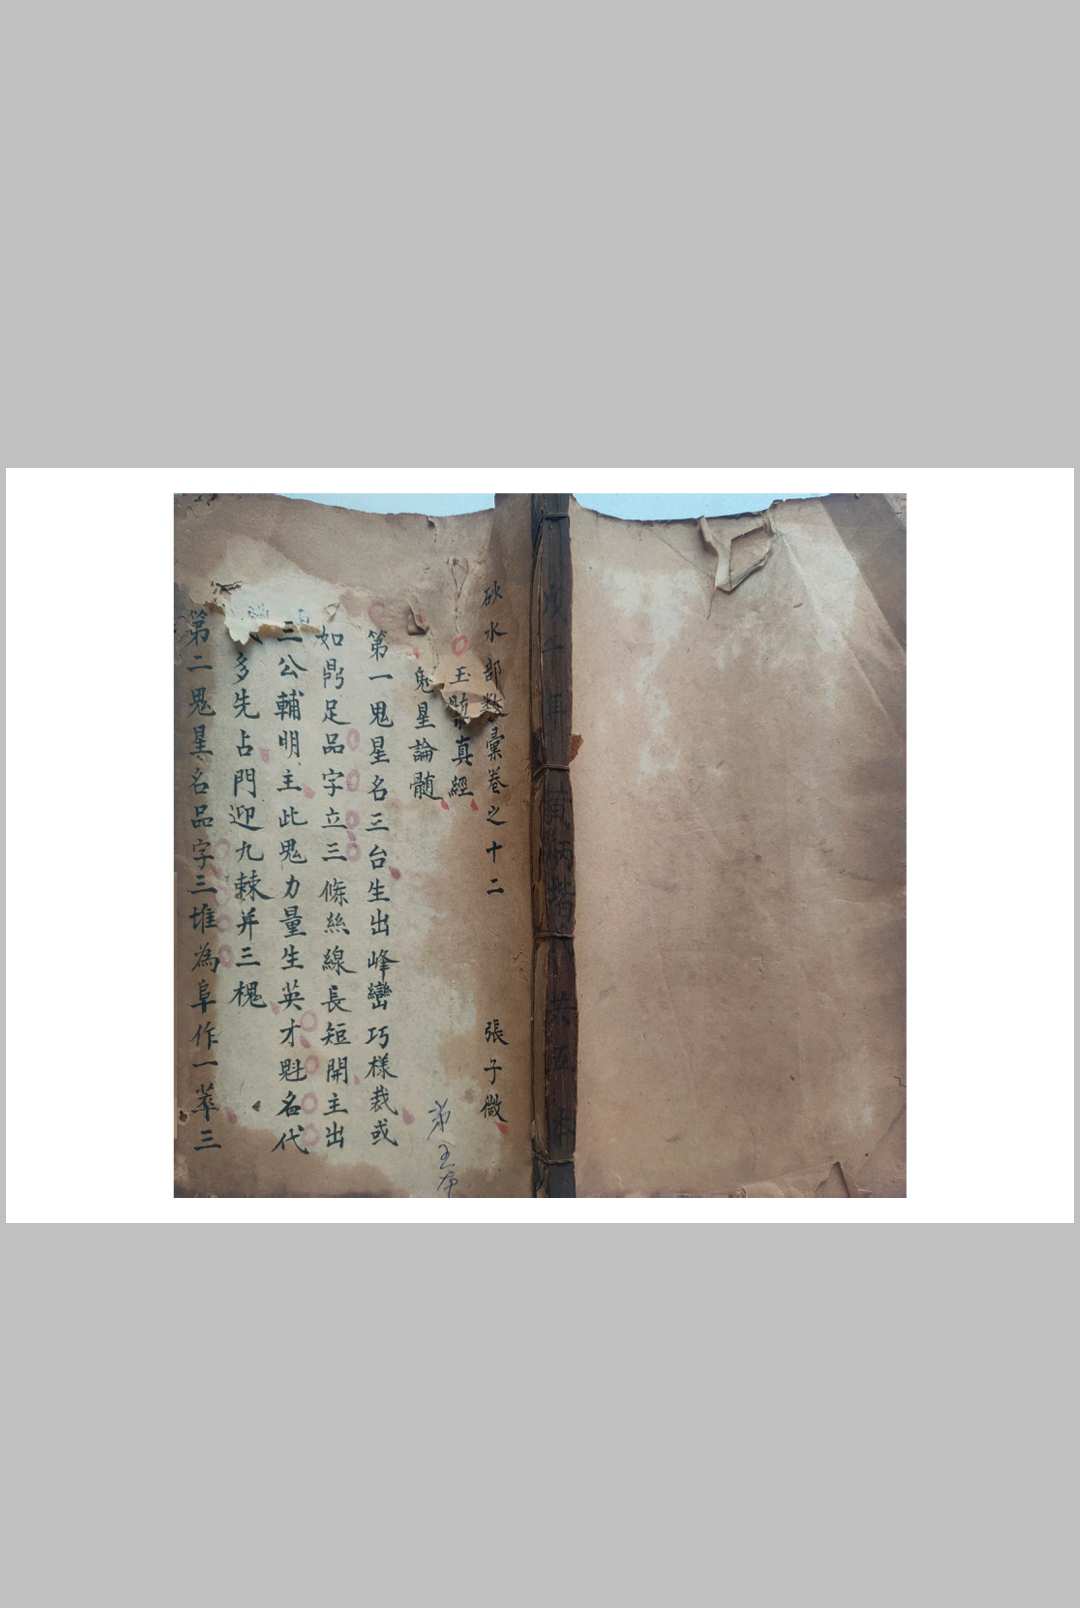 砂水部彙卷之十二 張子微
玉真經
鬼星論髓
第一鬼星名三台生出峰巒巧樣裁或
如鼎足品字立三條絲線長短開主出
三公輔明主此鬼力量生英才魁名代
多先占門迎九棘并三槐
第二鬼星名品字三堆為阜作一羣三
共五本